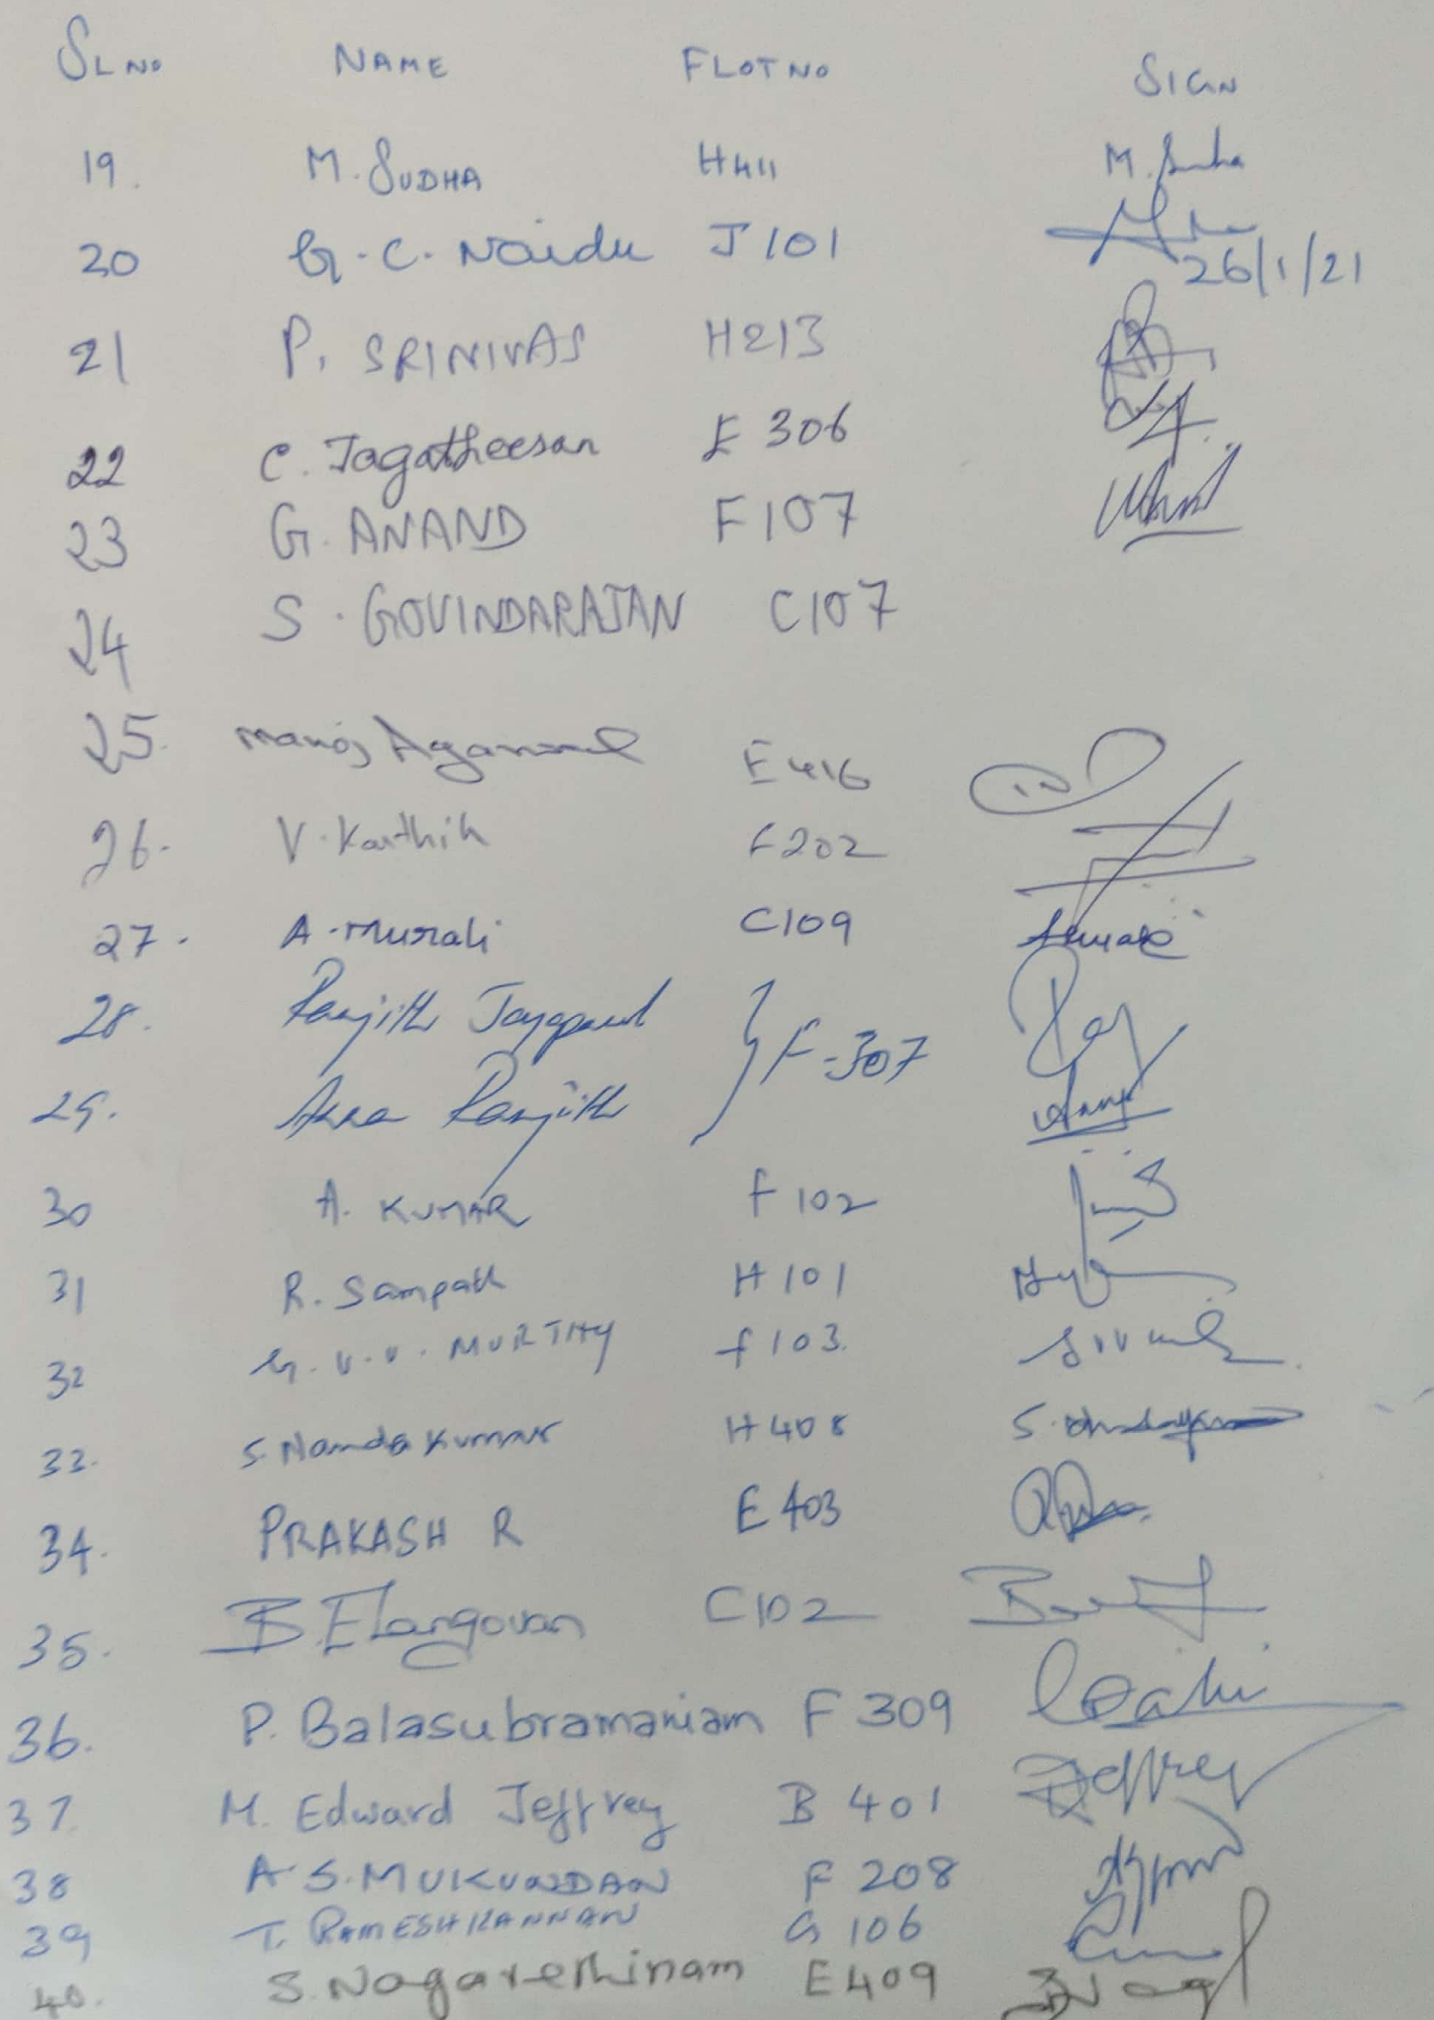 SL NO NAME FLOT NO SIGN
19. M. SUDHA H411 M. Sudha
20 G. C. Naidu J 101
26/1/21
21 P. SRINIVAS H213
22 C. Jagatheesan E 306
23 G. ANAND F107
24 S. GOVINDARAJAN C107
25. Manoj Agarwal E416
26. V. Karthik F202
27. A. Murali C109
28. Ranjith Jayapaul F-307
29. Anna Ranjith
30 A. KUMAR F 102
31 R. Sampath H 101
32 G. V. V. MURTHY F 103.
33. S. Nanda Kumar H 408
34. PRAKASH R E 403
35. B. Elangovan C102
36. P. Balasubramaniam F 309
37 M. Edward Jeffrey B 401 Jeffrey
38 A S. MUKUNDAN F 208
39 T. RAMESH KANNAN G 106
40. S. Nagarethinam E409